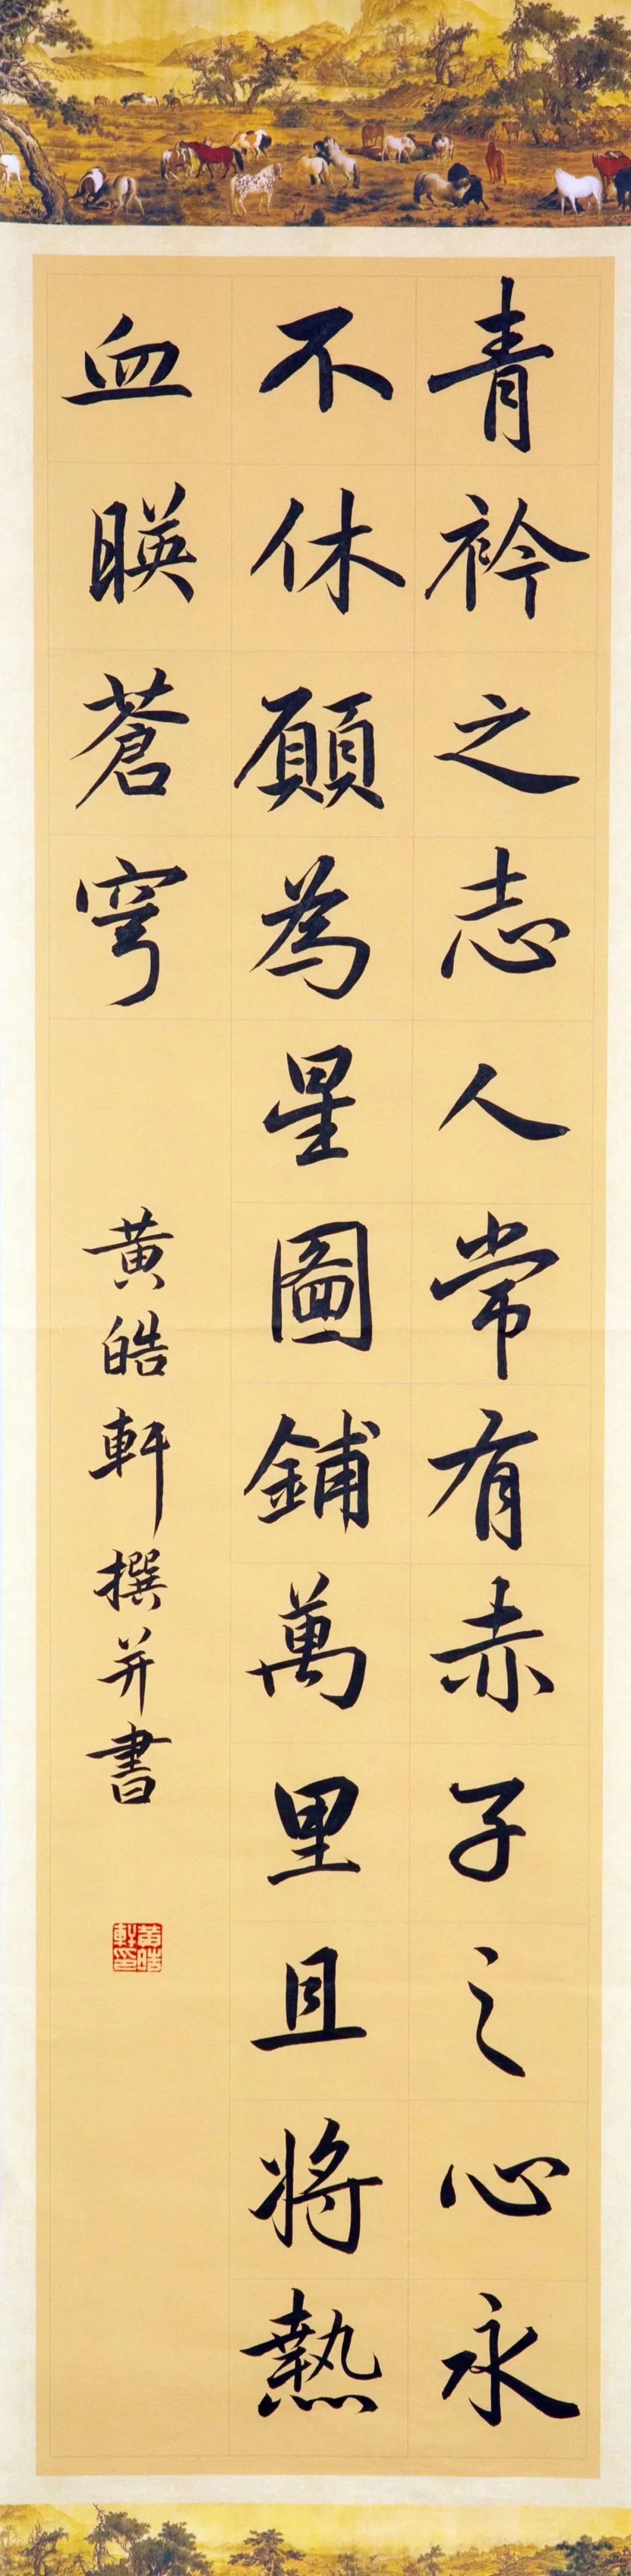 青衿之志人常有赤子之心永
不休願為星圖鋪萬里且將熱
血暎蒼穹
黃皓軒撰并書
黃皓軒印